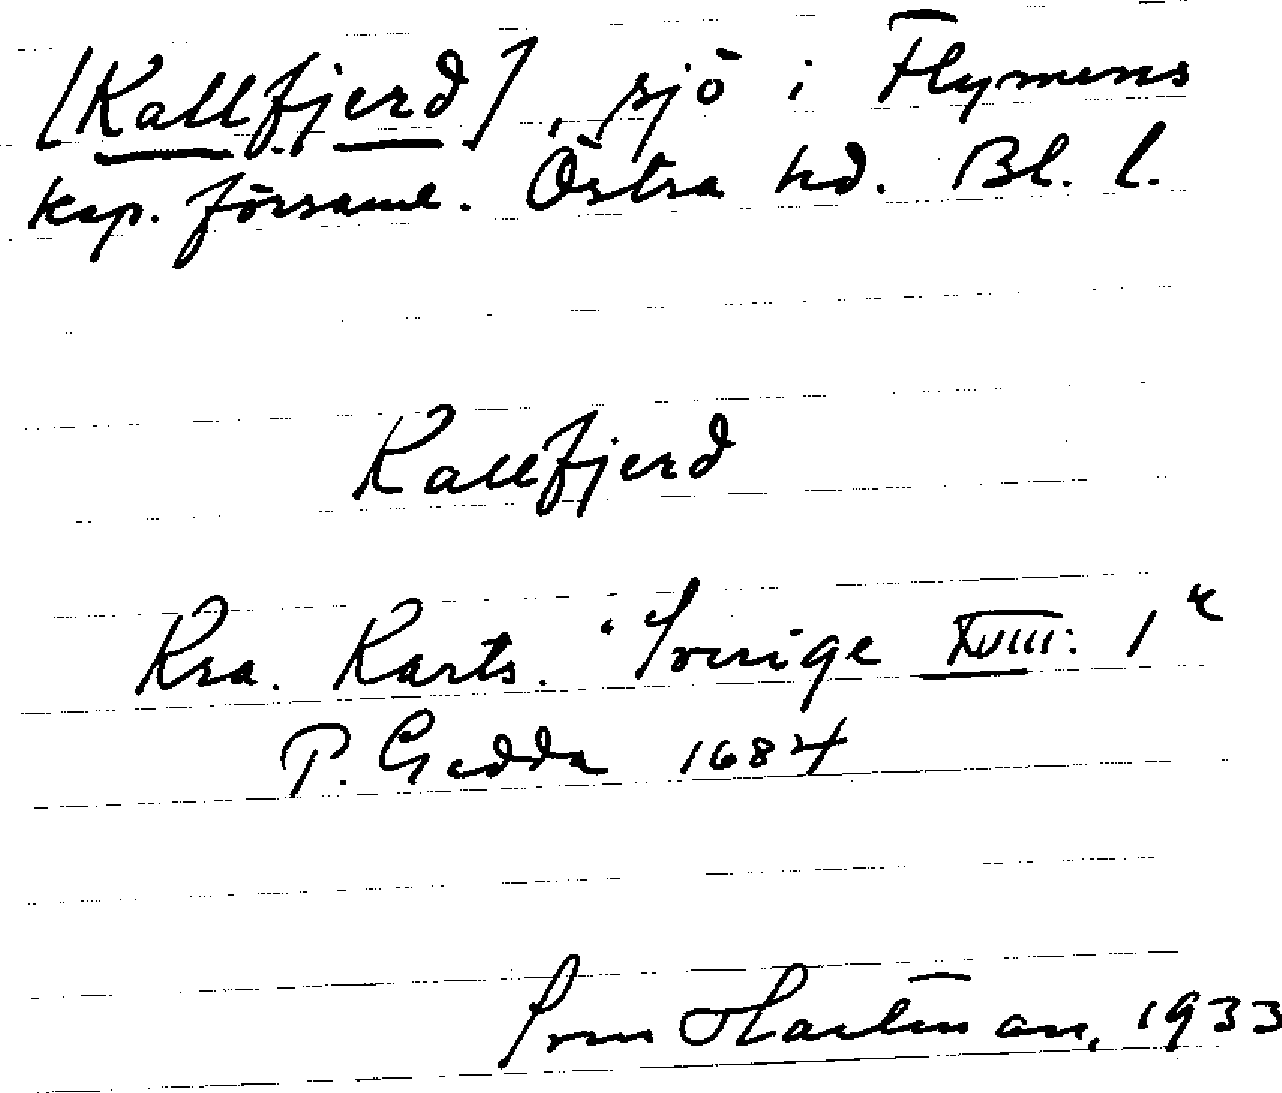 [Kallfjerd], sjö i Flymens
kap. församl. Östra hd. Bl. l.
Kallfjerd
Kra. Karts. Sverige XVIII: 1
P. Gedda 1684
Sven Hartman, 1933